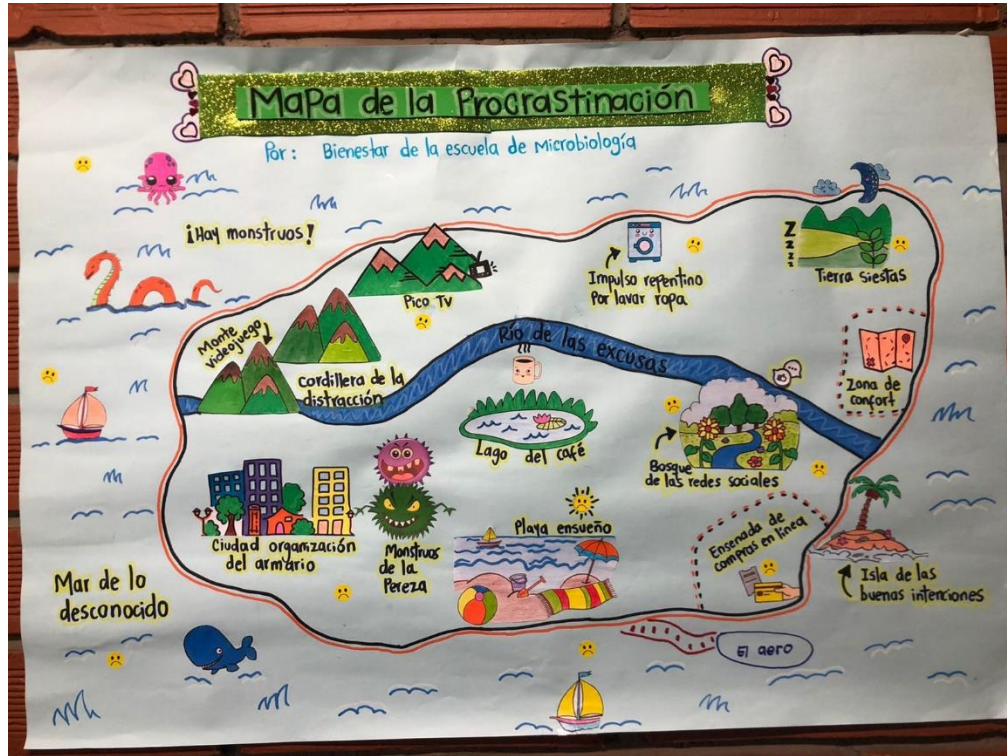 Mapa de la Procrastinación
Por: Bienestar de la escuela de Microbiología
¡Hay monstruos!
Pico Tv
Impulso repentino
Por lavar ropa
Z
z
z
z
Tierra siestas
Monte
videojuego
Cordillera de la
distracción
Río de las excusas
Zona de
confort
Lago del café
Bosque
de las redes sociales
Ciudad organización
del armario
Monstruos
de la
Pereza
Playa ensueño
Ensenada de
compras en línea
Isla de las
buenas intenciones
Mar de lo
desconocido
El aero